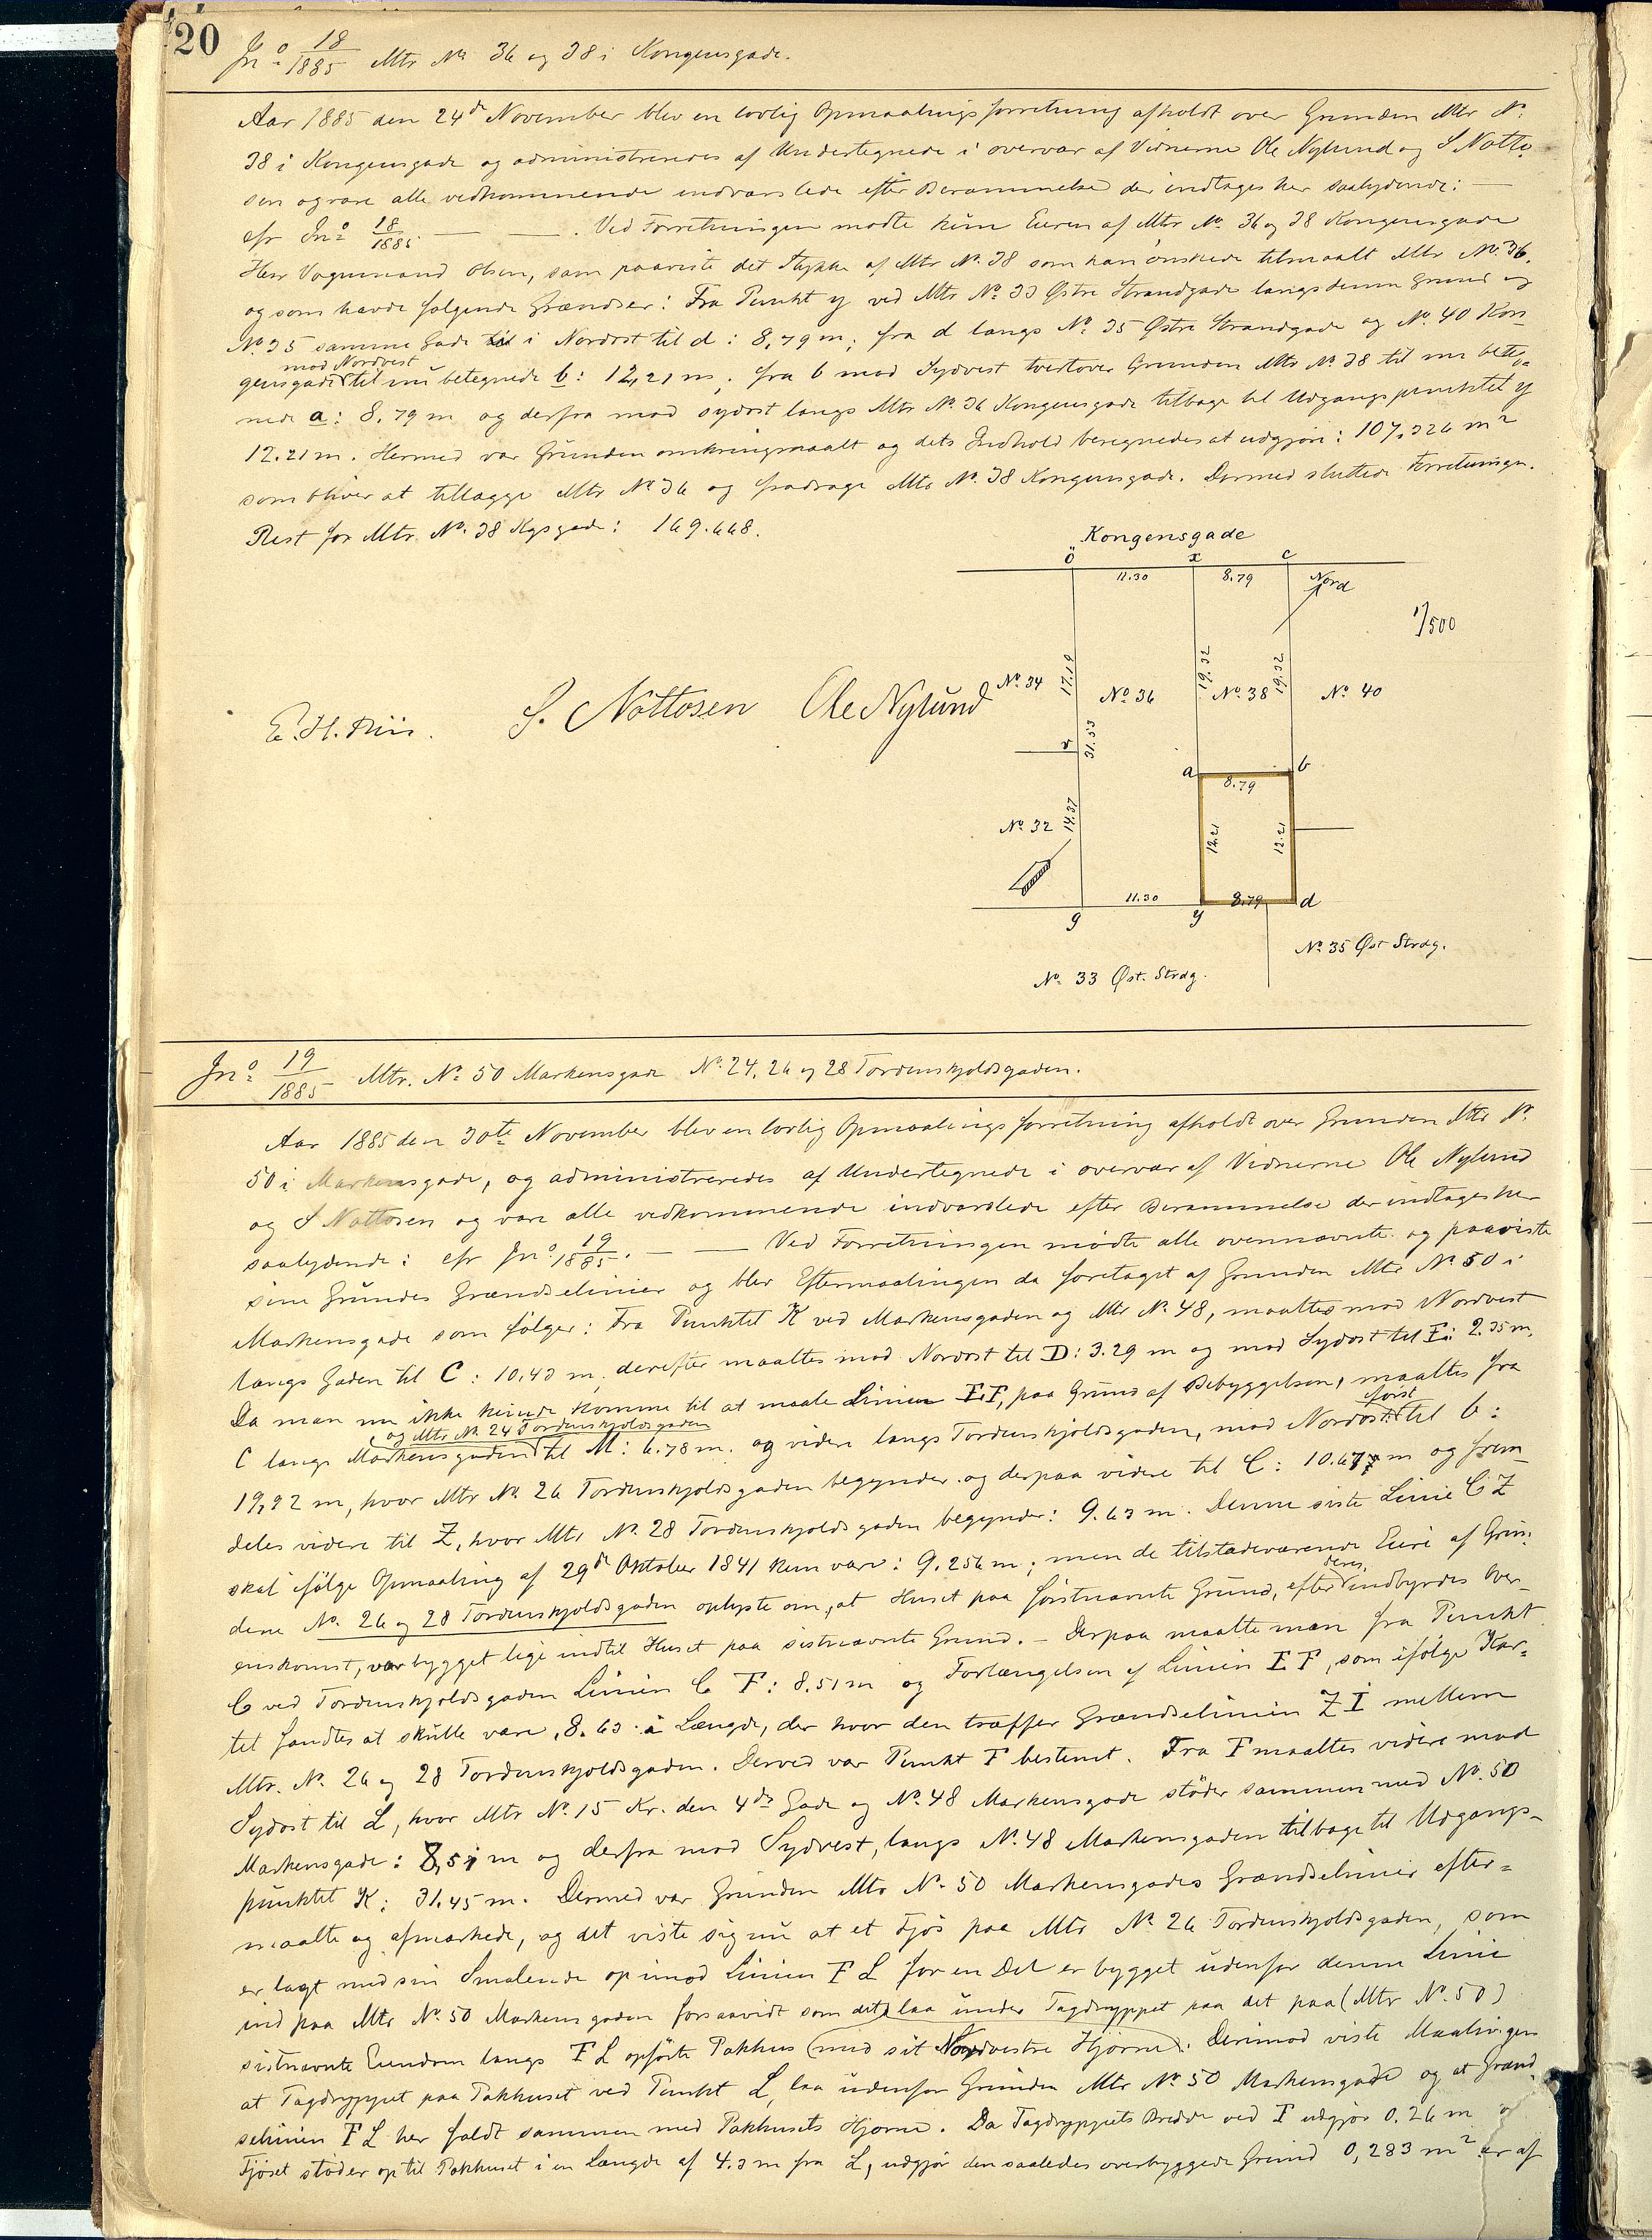 20
Jnº 18/1885 Mtr Nº 36 og 38 i Kongensgade.
Aar 1885 den 24de November blev en lovlig Opmaalingsforretning afholdt over Grunden Mtr Nº
38 i Kongensgade og administreredes af Undertegnede i overvær af Vidnerne Ole Nylund og S Notto-
sen og vare alle vedkommende indvarslede efter Berammelse der indtages her saalydende: —
cfr Jnº 18/1885. — — . Ved Forretningen mødte kun Eieren af Mtr Nº 36 og 38 Kongensgade
Herr Vognmand Olsen, som paaviste det Stykke af Mtr Nº 38 som han ønskede tilmaalt Mtr Nº 36.
og som havde følgende Grændser: Fra Punkt y ved Mtr Nº 33 Østre Strandgade langs denne Grund og
Nº 35 samme Gade i Nordost til d: 8,79 m; fra d langs Nº 35 Østre Strandgade og Nº 40 Kon-
mod Nordvest
gensgade til nu betegnede b: 12,21 m; fra b mod Sydvest tvertover Grunden Mtr Nº 38 til nu beteg-
nede a: 8.79 m og derfra mod sydost langs Mtr Nº 36 Kongensgade tilbage til Udgangspunktet y
12.21 m. Hermed var Grunden omkringmaalt og dets Indhold beregnedes at udgjøre: 107.326 m²
som bliver at tillægge Mtr Nº 36 og fradrage Mtr Nº 38 Kongensgade. Dermed sluttede Forretningen.
Rest for Mtr. Nº 38 Kgsgade: 169.668.
Kongensgade
ö x c
11.30 8.79 Nord
1/500
Nº 34 17.19 Nº 36 19.32 Nº 38 19.32 Nº 40
E. H. Riis. S. Nottosen Ole Nylund
r 31.53
a b
8.79
Nº 32 14.37 12.21 12.21
11.30 8.79 d
g y
Nº 35 Øst Strdg.
Nº 33 Øst. Strdg.
Jnº 19/1885 Mtr. Nº 50 Markensgade Nº 24, 26 og 28 Tordenskjoldsgaden.
Aar 1885 den 30te November blev en lovlig Opmaalingsforretning afholdt over Grunden Mtr Nº
50 i Markensgade, og administreredes af Undertegnede i overvær af Vidnerne Ole Nylund
og S Nottosen og vare alle vedkommende indvarslede efter Berammelse der indtages her
saalydende: cfr Jnº 19/1885. — — Ved Forretningen mødte alle ovennævnte og paaviste
sine Grundes Grændselinier og blev Eftermaalingen da foretaget af Grunden Mtr Nº 50 i
Markensgade som følger: Fra Punktet K ved Markensgaden og Mtr Nº 48, maaltes mod Nordvest
langs Gaden til C: 10.43 m, derefter maaltes mod Nordost til D: 3.29 m og mod Sydost til E: 2.35 m.
Da man nu ikke kunde komme til at maale Linien EF, paa Grund af Bebyggelsen, maaltes fra
og Mtr Nº 24 Tordenskjoldsgaden først
C langs Markensgaden til M: 6.78 m. og videre langs Tordenskjoldsgaden, mod Nordost til b:
19,92 m, hvor Mtr Nº 26 Tordenskjoldsgaden begynder og derpaa videre til C: 10.67 m og frem-
deles videre til Z, hvor Mtr Nº 28 Tordenskjoldsgaden begynder: 9.63 m. Denne siste Linie C Z
skal ifølge Opmaaling af 29de Oktober 1841 kun være: 9.256 m; men de tilstædeværende Eiere af Grun-
deres
dene Nº 26 og 28 Tordenskjoldsgaden oplyste om, at Huset paa førstnævnte Grund, efter indbyrdes Over-
enskomst, var bygget lige indtil Huset paa sistnævnte Grund. — Derpaa maalte man fra Punkt
C ved Tordenskjoldsgaden Linien C F: 8.51 m og Forlængelsen af Linien E F, som ifølge Kar-
tet fandtes at skulle være 8.63 i Længde, der hvor den træffer Grændselinien Z I mellem
Mtr. Nº 26 og 28 Tordenskjoldsgaden. Derved var Punkt F bestemt. Fra F maaltes videre mod
Sydost til L, hvor Mtr Nº 15 Kr. den 4des Gade og Nº 48 Markensgade støder sammen med Nº 50
Markensgade: 8,51 m og derfra mod Sydvest, langs Nº 48 Markensgaden tilbage til Udgangs-
punktet K: 31.45 m. Dermed var Grunden Mtr Nº 50 Markensgades Grændselinier efter-
maalte og afmærkede, og det viste sig nu at et Fjøs paa Mtr Nº 26 Tordenskjoldsgaden, som
er lagt med sin Smalende op imod Linien F L for en Del er bygget udenfor denne Linie
ind paa Mtr Nº 50 Markensgaden forsaavidt som det laa under Tagdryppet paa det paa (Mtr Nº 50)
sistnævnte Eiendom langs F L opførte Pakhus (med sit Nordvestre Hjørne). Derimod viste Maalingen
at Tagdryppet paa Pakhuset ved Punkt L, laa udenfor Grunden Mtr Nº 50 Markensgade og at Grænd-
selinien F L her faldt sammen med Pakhusets Hjørne. Da Tagdryppets Bredde ved F udgjør 0.26 m og
Fjøset støder op til Pakhuset i en Længde af 4.3 m fra L, udgjør den saaledes overbyggede Grund 0,283 m² er af